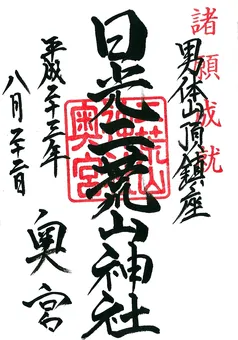 諸願成就
男体山頂鎮座
日光二荒山神社
二荒山神社奥宮
平成二十三年
八月二十二日
奥宮